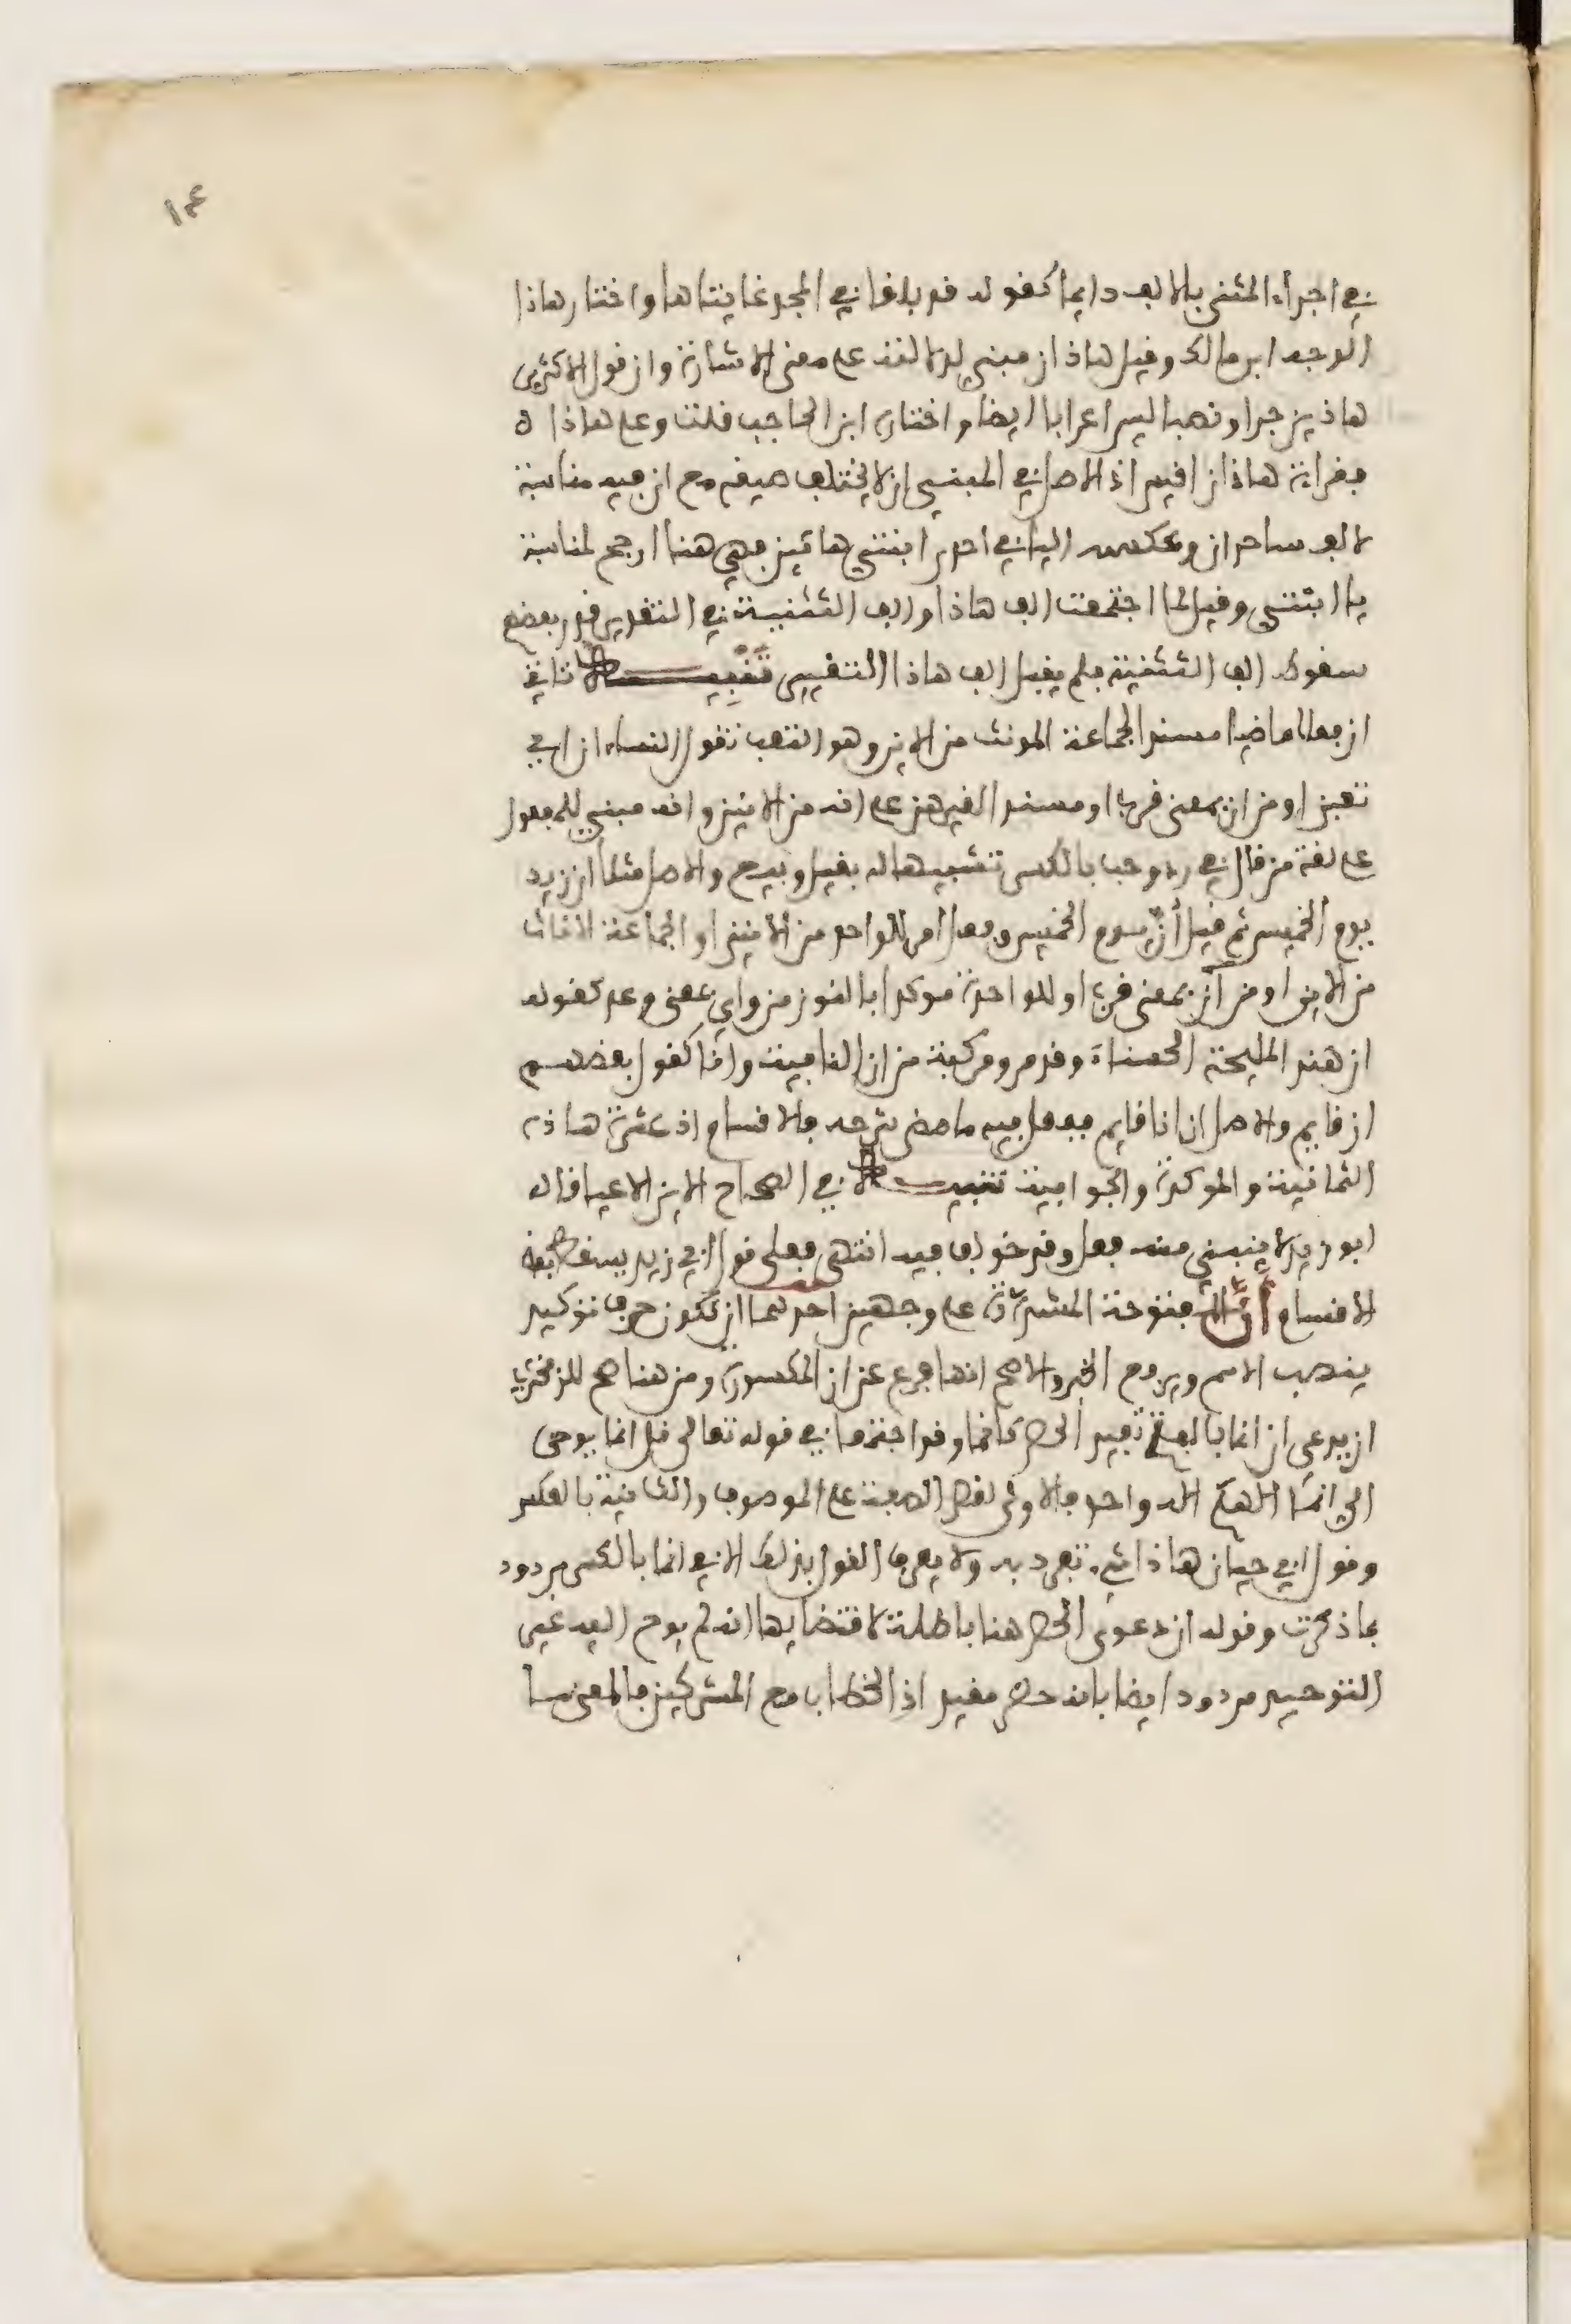 ١٤
في اجراء المثنى بالالف دايما كقوله قد بلغا في المجد غايتاها واختار هاذا
الوجه ابن مالك وقيل هاذان مبني لدلالته على معنى الاشارة وان قول الاكثرين
هاذين جرا ونصبا ليس اعرابا ايضا واختاره ابن الحاجب قلت وعلى هاذا
فقراءة هاذان اقيس اذ الاصل في المبني ان لا يختلف صيغه مع ان فيه مناسبة
لالف ساحران وعكسه اليا في احدى ابنتي هاتين فهي هنا ارجح لمناسبة
يا ابنتي وقيل لما اجتمعت الف هاذا والف التثنية في التقدير قدر بعضهم
سقوط الف التثنية فلم يقبل الف هاذا التغيير تنبيه تاتي
ان فعلا ماضيا مسندا لجماعة المونث من الاين وهو التعب تقول النساء ان اي
تعبن او من ان بمعنى قرب او مسندا لغيرهن على انه من الانين وانه مبني للمفعول
على لغة من قال في رد وحب بالكسر تشبيها له بقيل وبيع والاصل مثلا ان زيد
يوم الخميس ثم قيل ان يوم الخميس وفعل امر للواحد من الانين او لجماعة الاناث
من الاين او من آن بمعنى قرب او للواحدة موكدا بالنون من واي بمعنى وعد كقوله
ان هند المليحة الحسناءَ وقد مر ومركبة من ان النافية وانا كقول بعضهم
ان قايم والاصل ان انا قايم ففعل فيه ما مضى شرحه فالاقسام اذ عشرة هاذه
الثمانية والموكدة والجوابية تنبيه في الصحاح الاين الاعيا قال
ابو زيد لا يبنى منه فعل وقد خولف فيه انتهى فعلى قول ابي زيد يسقط بعض
الاقسام أنّ المفتوحة المشدّدة على وجهين احدهما ان تكون حرف توكيد
ينصب الاسم ويرفع الخبر والاصح انها فرع عن ان المكسورة ومن هنا صح للزمخشري
ان يدعي ان انما بالفتح تفيد الحصر كانما وقد اجتمعا في قوله تعالى قل انما يوحى
الي انما الهكم اله واحد فالاولى لقصر الصفة على الموصوف والثانية بالعكس
وقول ابي حيان هاذا شيء تفرد به ولا يعرف القول بذلك الا في انما بالكسر مردود
بما ذكرت وقوله ان دعوى الحصر هنا باطلة لاقتضايها انه لم يوح اليه غير
التوحيد مردود ايضا بانه حصر مقيد اذ الخطاب مع المشركين فالمعنى ما